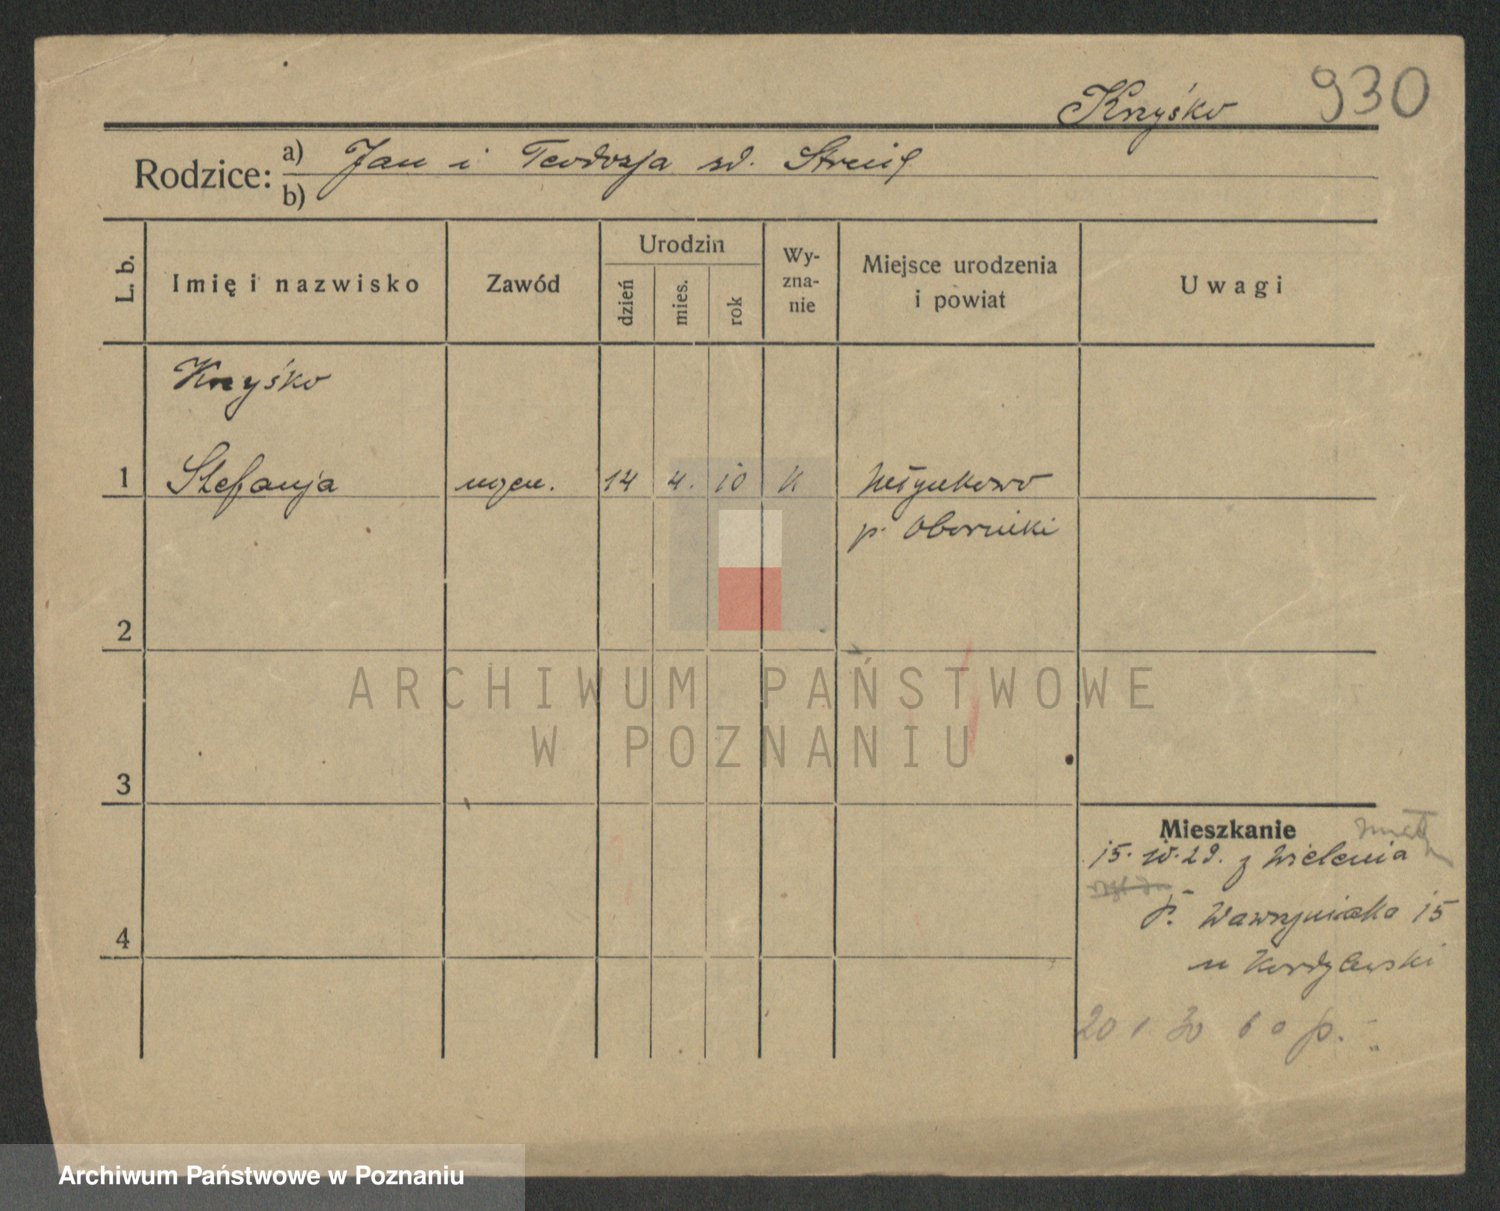 Krzyśko 930
Rodzice: a) Jan i Teodozja zd.
b)
L. b. Imię i nazwisko Zawód Urodzin dzień mies. rok Wy-zna-nie Miejsce urodzenia i powiat Uwagi
Krzyśko
1 Stefanja 14 4. 10 k Młynkowo
p. Oborniki
2
ARCHIWUM PAŃSTWOWE
W POZNANIU
3
Mieszkanie
15. 10. 29. z Wielenia
4 Wawrzyniaka 15
u Kordylewski
20 1 30
Archiwum Państwowe w Poznaniu